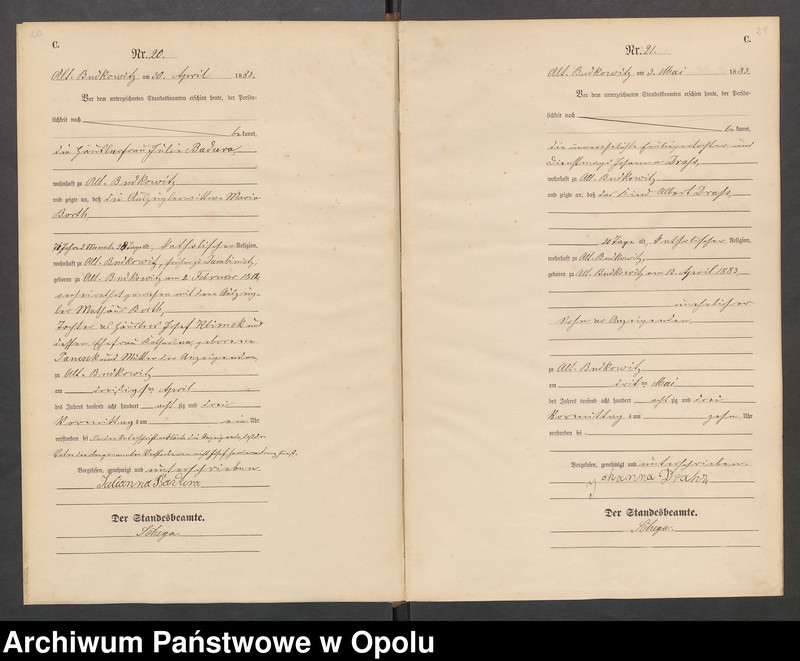 20
C.
Nr. 20.
Alt. Budkowitz am 30. April 1883.
Vor dem unterzeichneten Standesbeamten erschien heute, der Persön-
lichkeit nach
bekannt,
die Häuslerfrau Julie Badura,
wohnhaft zu Alt. Budkowitz
und zeigte an, daß die Auszüglerwittwe Maria
Borth
Jahre 2 Monate 28 Tage alt, katholischer Religion,
wohnhaft zu Alt. Budkowitz, früher zu
geboren zu Alt. Budkowitz am 2. Februar
verheirathet gewesen mit dem Auszüg-
ler Mathäus Borth,
Tochter des Häuslers Josef Klimek und
dessen Ehefrau Katharina, geborene
Panczek und Mutter der Anzeigenden,
zu Alt. Budkowitz
am dreißigsten April
des Jahres tausend acht hundert achtzig und drei
Vormittag s um ein Uhr
verstorben sei
Vorgelesen, genehmigt und unterschrieben
Julianna Badura
Der Standesbeamte.
21
C.
Nr. 21.
Alt. Budkowitz am 3. Mai 1883.
Vor dem unterzeichneten Standesbeamten erschien heute, der Persön-
lichkeit nach
bekannt,
die unverehelichte tochter und
Dienstmagd Johanna Drahs,
wohnhaft zu Alt. Budkowitz
und zeigte an, daß das Kind Albert Drahs,
20 Tage alt, katholischer Religion,
wohnhaft zu Alt. Budkowitz,
geboren zu Alt. Budkowitz am 13. April 1883,
unehelicher
Sohn der Anzeigenden,
zu Alt. Budkowitz
am dritten Mai
des Jahres tausend acht hundert achtzig und drei
Vormittag s um zehn Uhr
verstorben sei
Vorgelesen, genehmigt und unterschrieben
Johanna Drahz
Der Standesbeamte.
Archiwum Państwowe w Opolu